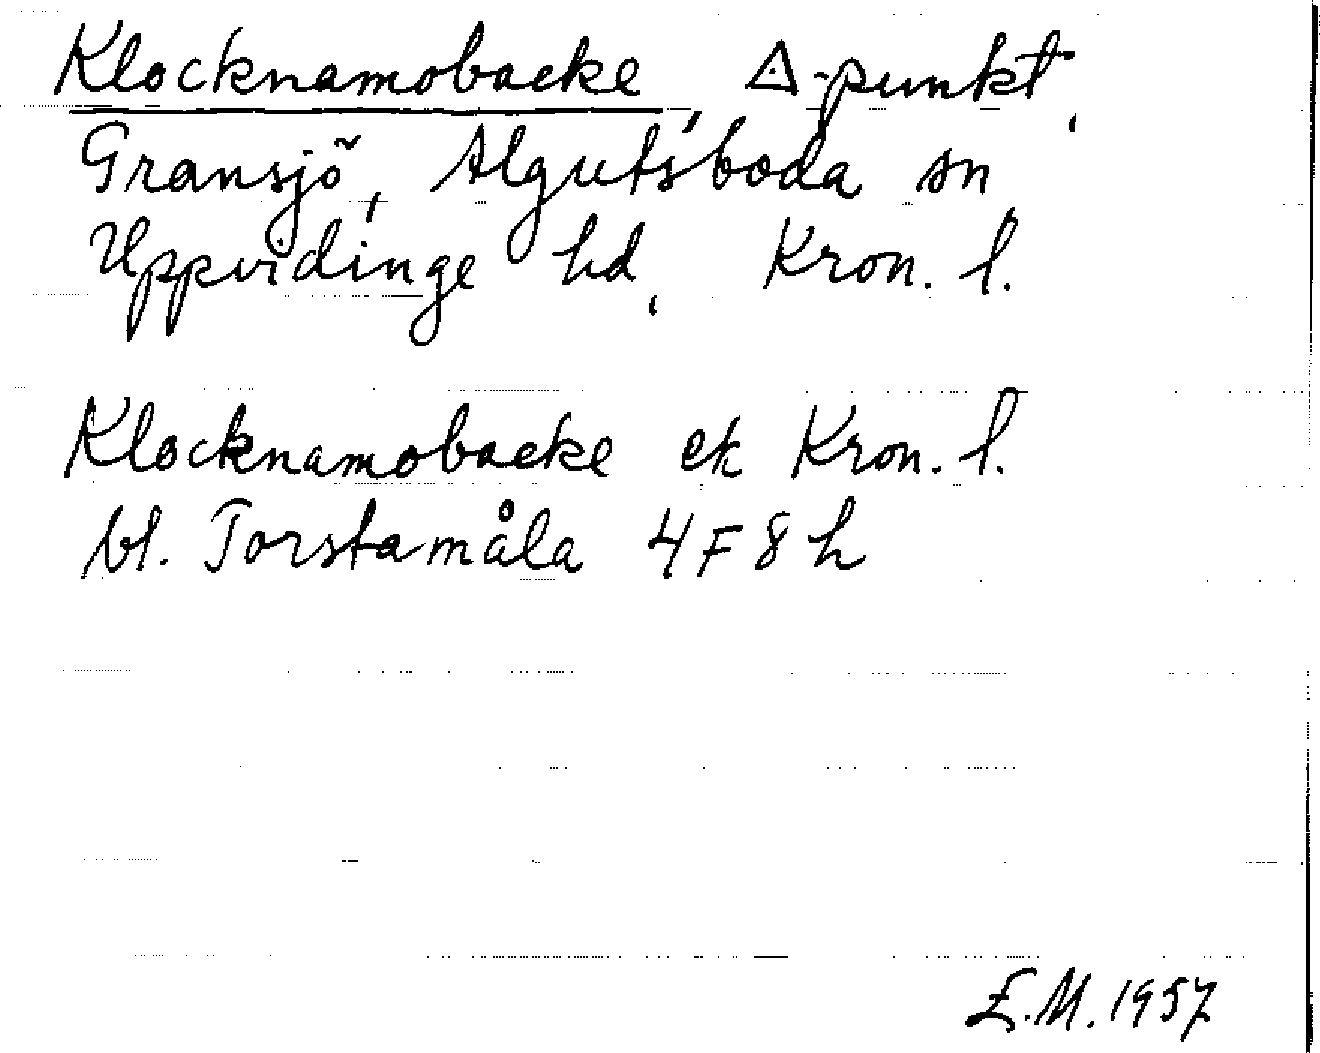 Klocknamobacke, △-punkt,
Gransjö, Algutsboda sn
Uppvidinge hd, Kron. l.
Klocknamobacke ek Kron. l.
bl. Torstamåla 4F8h
E.M. 1957